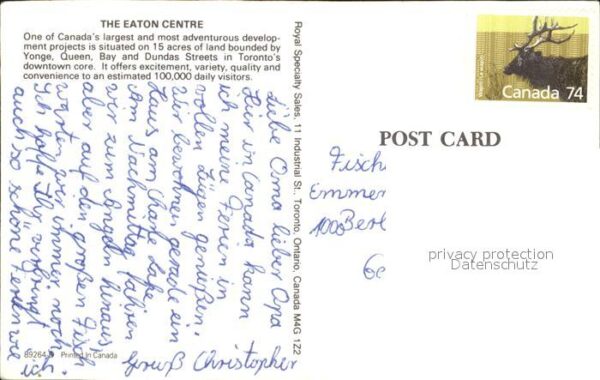 THE EATON CENTRE
One of Canada's largest and most adventurous develop-
ment projects is situated on 15 acres of land bounded by
Yonge, Queen, Bay and Dundas Streets in Toronto's
downtown core. It offers excitement, variety, quality and
convenience to an estimated 100,000 daily visitors.
Liebe Oma lieber Opa
hier in Canada kann
ich meine Ferien in
vollen Zügen genießen.
Wir bewohnen gerade ein
Haus am Lake.
Am Nachmittag fahren
wir zum Angeln hinaus
aber auf den großen Fisch
warten wir immer noch.
Ich hoffe Ihr verbringt
auch so schöne Ferien wie
ich.
Gruß Christopher
89264-D Printed in Canada
Royal Specialty Sales, 11 Industrial St., Toronto, Ontario, Canada M4G 1Z2
Canada 74
POST CARD
Fisch
Emmer
1000 Berl
privacy protection
Datenschutz